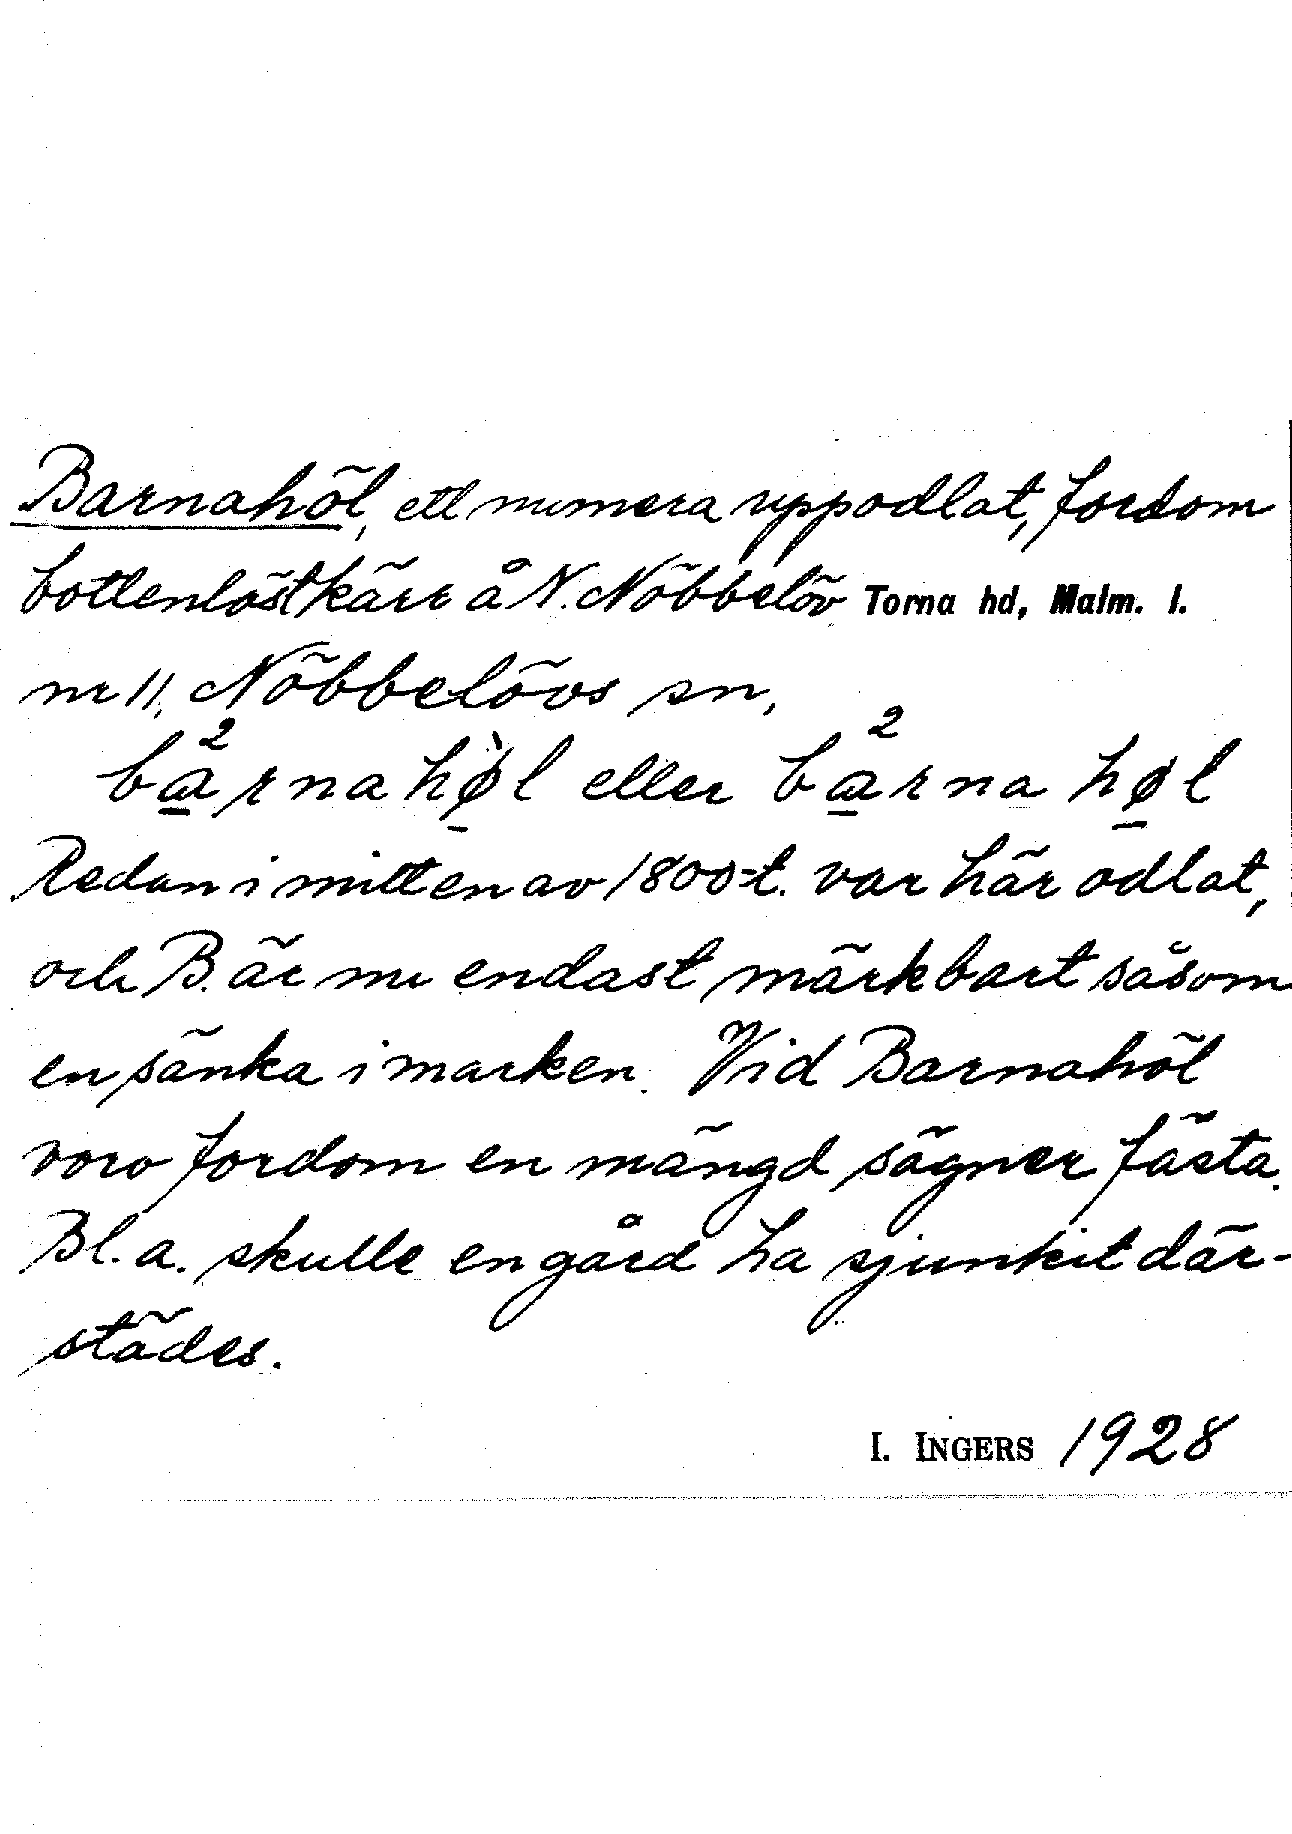 Barnahöl, ett numera uppodlat, fordom
bottenlöst kärr å N. Nöbbelöv Torna hd, Malm. l.
nr 11, Nöbbelövs sn,
bа̲²rnahø̲̀l eller ba̲²rna hø̲l
Redan i mitten av 1800-t. var här odlat,
och B. är nu endast märkbart såsom
en sänka i marken. Vid Barnahöl
voro fordom en mängd sägner fästa.
Bl. a. skulle en gård ha sjunkit där-
städes.
I. INGERS 1928